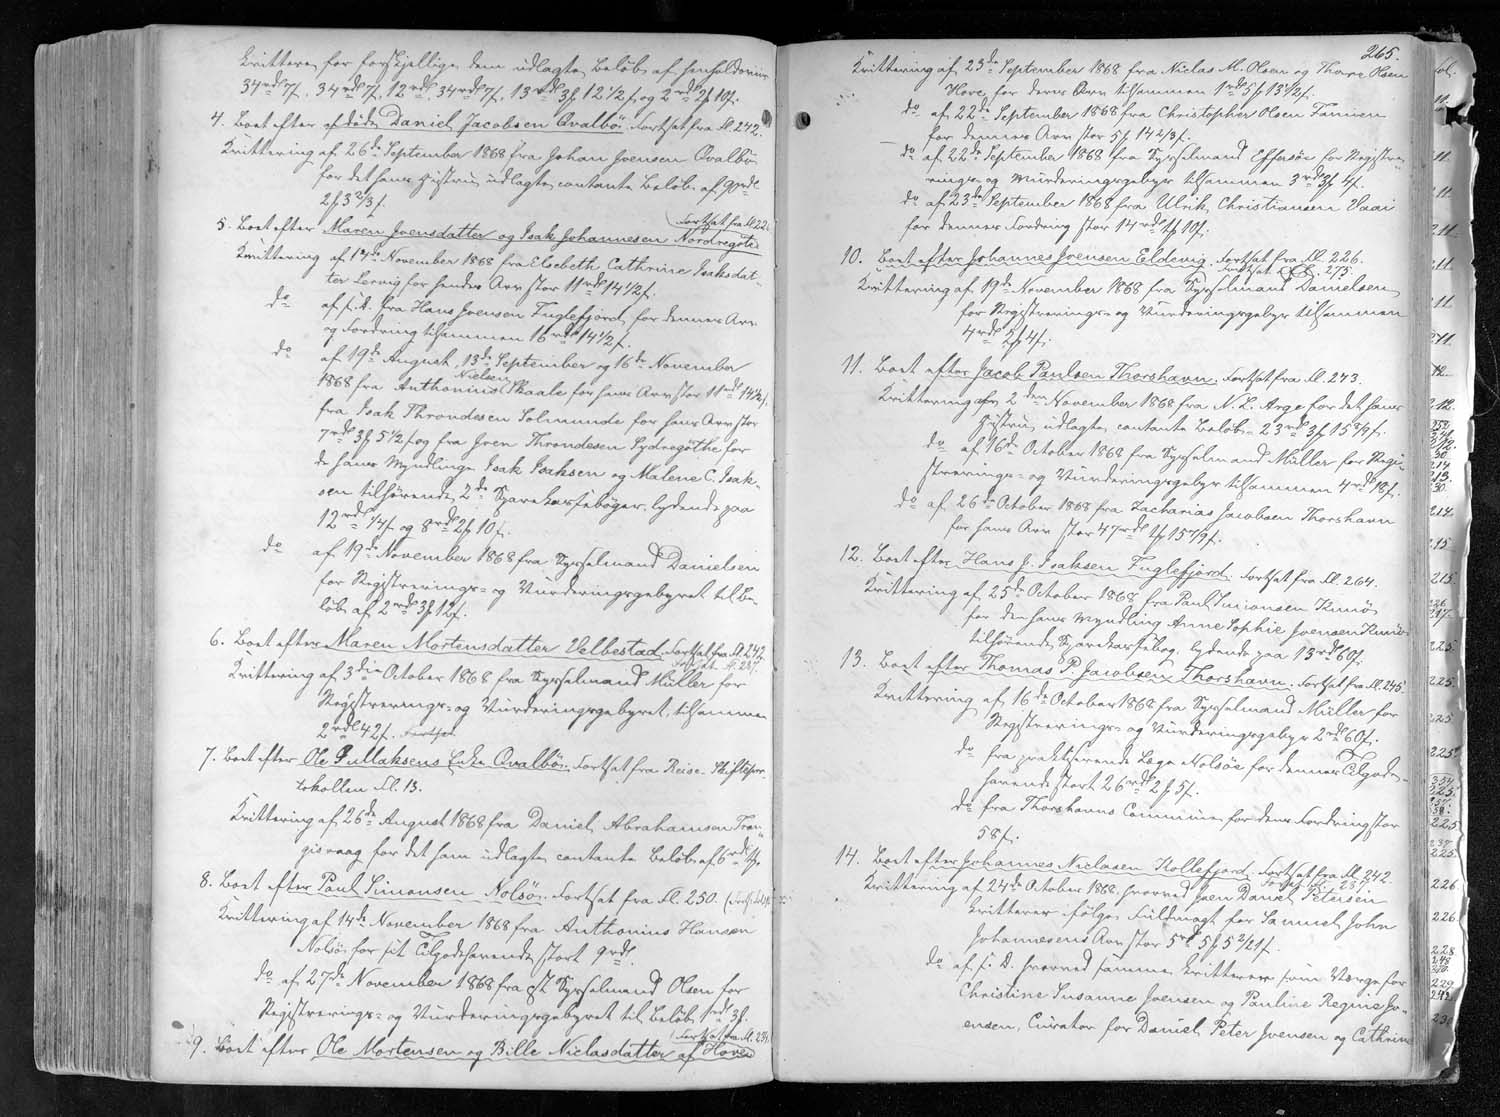 kvitterer for forskjellige dem udlagte Beløb af henholdsviis
34rdl 7ß, 34rdl 7ß, 12rdl, 34rdl 7ß, 13rdl 3ß 12 1/2 f. og 2rdl 2ß 10f.
4. Boet efter afdøde Daniel Jacobsen Qvalbø. Fortsat fra Fl. 242.
Kvittering af 26de September 1868 fra Johan Joensen Qvalbø
for det hans Hustru udlagte contante Beløb af 9rdl
2ß 3 2/3 f.
(Fortsat fra Fl 22
5. Boet efter Maren Joensdatter og Isak Johannesen Nordregøte
Kvittering af 14de November 1868 fra Elsebeth Cathrine Isaksdat-
ter Lervig for hendes Arv stor 11rdl 14 1/2 f.
do af s. D. fra Hans Joensen Fuglefjord for dennes Arv
og Fordring tilsammen 16rdl 14 1/2 f.
do af 19de August, 13de September og 16de November
1868 fra Anthonius Nielsen Skaale for hans Arv stor 11rdl 14 1/2 f.
fra Isak Throndesen Solmunde for hans Arv stor
7rdl 3ß 5 1/2 f. og fra Joen Throndesen Sydregøthe for
de hans Myndlinge Isak Isaksen og Malene C. Isak-
sen tilhørende 2de Sparekassebøger, lydende paa
12rdl 14f. og 8rdl 2ß 10f.
do af 19de November 1868 fra Sysselmand Danielsen
for Registrerings- og Vurderingsgebyret til Be-
løb af 2rdl 3ß 12f.
6. Boet efter Maren Mortensdatter Velbestad, Fortsat fra Fl. 242
Forts. at. Fl. 287.
Kvittering af 3die October 1868 fra Sysselmand Müller for
Registrerings- og Vurderingsgebyret, tilsammen
2rdl 42f.
7. Boet efter Ole Gullaksens Enke Qvalbø. Fortsat fra Reise-Skiftepro-
tokollen Fl. 13.
Kvittering af 26de August 1868 fra Daniel Abrahamsen Tran-
gisvaag for det ham udlagte contante Beløb af 6rdl
8. Boet efter Paul Simonsen Nolsø. Fortsat fra Fl. 250.
Kvittering af 14de November 1868 fra Anthonius Hansen
Nolsø for sit Tilgodehavende stort 9rdl.
do af 27de November 1868 fra cst. Sysselmand Olsen for
Registrerings- og Vurderingsgebyret til Beløb 3ß.
(Fortsat fra Fl. 234.
9. Boet efter Ole Mortensen og Bille Niclasdatter af Hove
265.
Kvittering af 23de September 1868 fra Niclas M. Olsen og Thore Olsen
Hove for deres Arv tilsammen 1rdl 5ß 13 1/2 f.
do af 22de September 1868 fra Christopher Olsen Famien
for dennes Arv stor 5ß 14 2/3 f.
do af 22de September 1868 fra Sysselmand Effersøe for Registre-
rings- og Vurderingsgebyr tilsammen 3rdl 3ß 4f.
do af 23de September 1868 fra Ulrik Christiansen Vaai
for dennes Fordring stor 14rdl 1ß 10f.
10. Boet efter Johannes Joensen Eldevig. Fortsat fra Fl. 226.
Fortsat Fl. 273.
Kvittering af 19de November 1868 fra Sysselmand Danielsen
for Registrerings- og Vurderingsgebyr tilsammen
4rdl 5ß 4f.
11. Boet efter Jacob Paulsen Thorshavn. Fortsat fra Fl. 243.
Kvittering af 2den November 1868 fra N. L. Arge for det hans
Hustru udlagte contante Beløb - 23rdl 3ß 15 8/9 f.
do af 16de October 1868 fra Sysselmand Müller for Regi-
strerings- og Vurderingsgebyr tilsammen 4rdl 18f.
do af 26de October 1868 fra Zacharias Jacobsen Thorshavn
for hans Arv stor 47rdl 1ß 15 7/9 f.
12. Boet efter Hans J. Isaksen Fuglefjord. Fortsat fra Fl. 264.
Kvittering af 25de October 1868 fra Paul Simonsen Kunø
for den hans Myndling Anne Sophie Joensen Kunø
tilhørende Sparekassebog, lydende paa 13rdl 60f.
13. Boet efter Thomas P. Jacobsen Thorshavn. Fortsat fra Fl. 245.
Kvittering af 16de October 1868 fra Sysselmand Müller for
Registrerings- og Vurderingsgebyr 2rdl 60f.
do fra praktiserende Læge Nolsøe for dennes Tilgode-
havende stort 26rdl 2ß 5f.
do fra Thorshavns Commune for dens Fordring stor
58f.
14. Boet efter Johannes Niclasen Kollefjord. Fortsat fra Fl. 242.
Fortsat Fl. 287.
Kvittering af 24de October 1868, hvorved Joen Daniel Petersen
kvitterer ifølge Fuldmagt for Samuel John
Johannesens Arv stor 5rdl 5ß 5 2/21 f.
do af s. D. hvorved samme kvitterer som Værge for
Christine Susanne Joensen og Pauline Regine Jo-
ensen, Curator for Daniel Peter Joensen og Cathrine